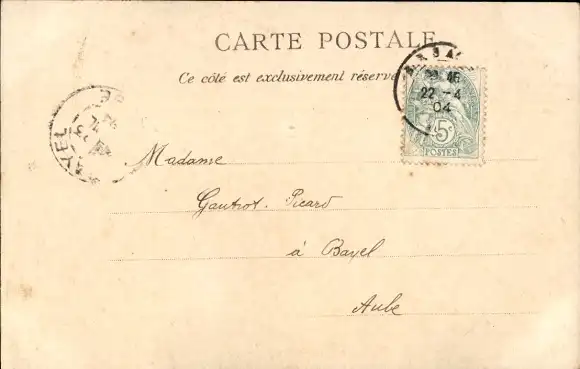 CARTE POSTALE
Ce côté est exclusivement réservé
22 -4
04
5c
POSTES
Madame
Gautrot-Picard
à Bayel
Aube